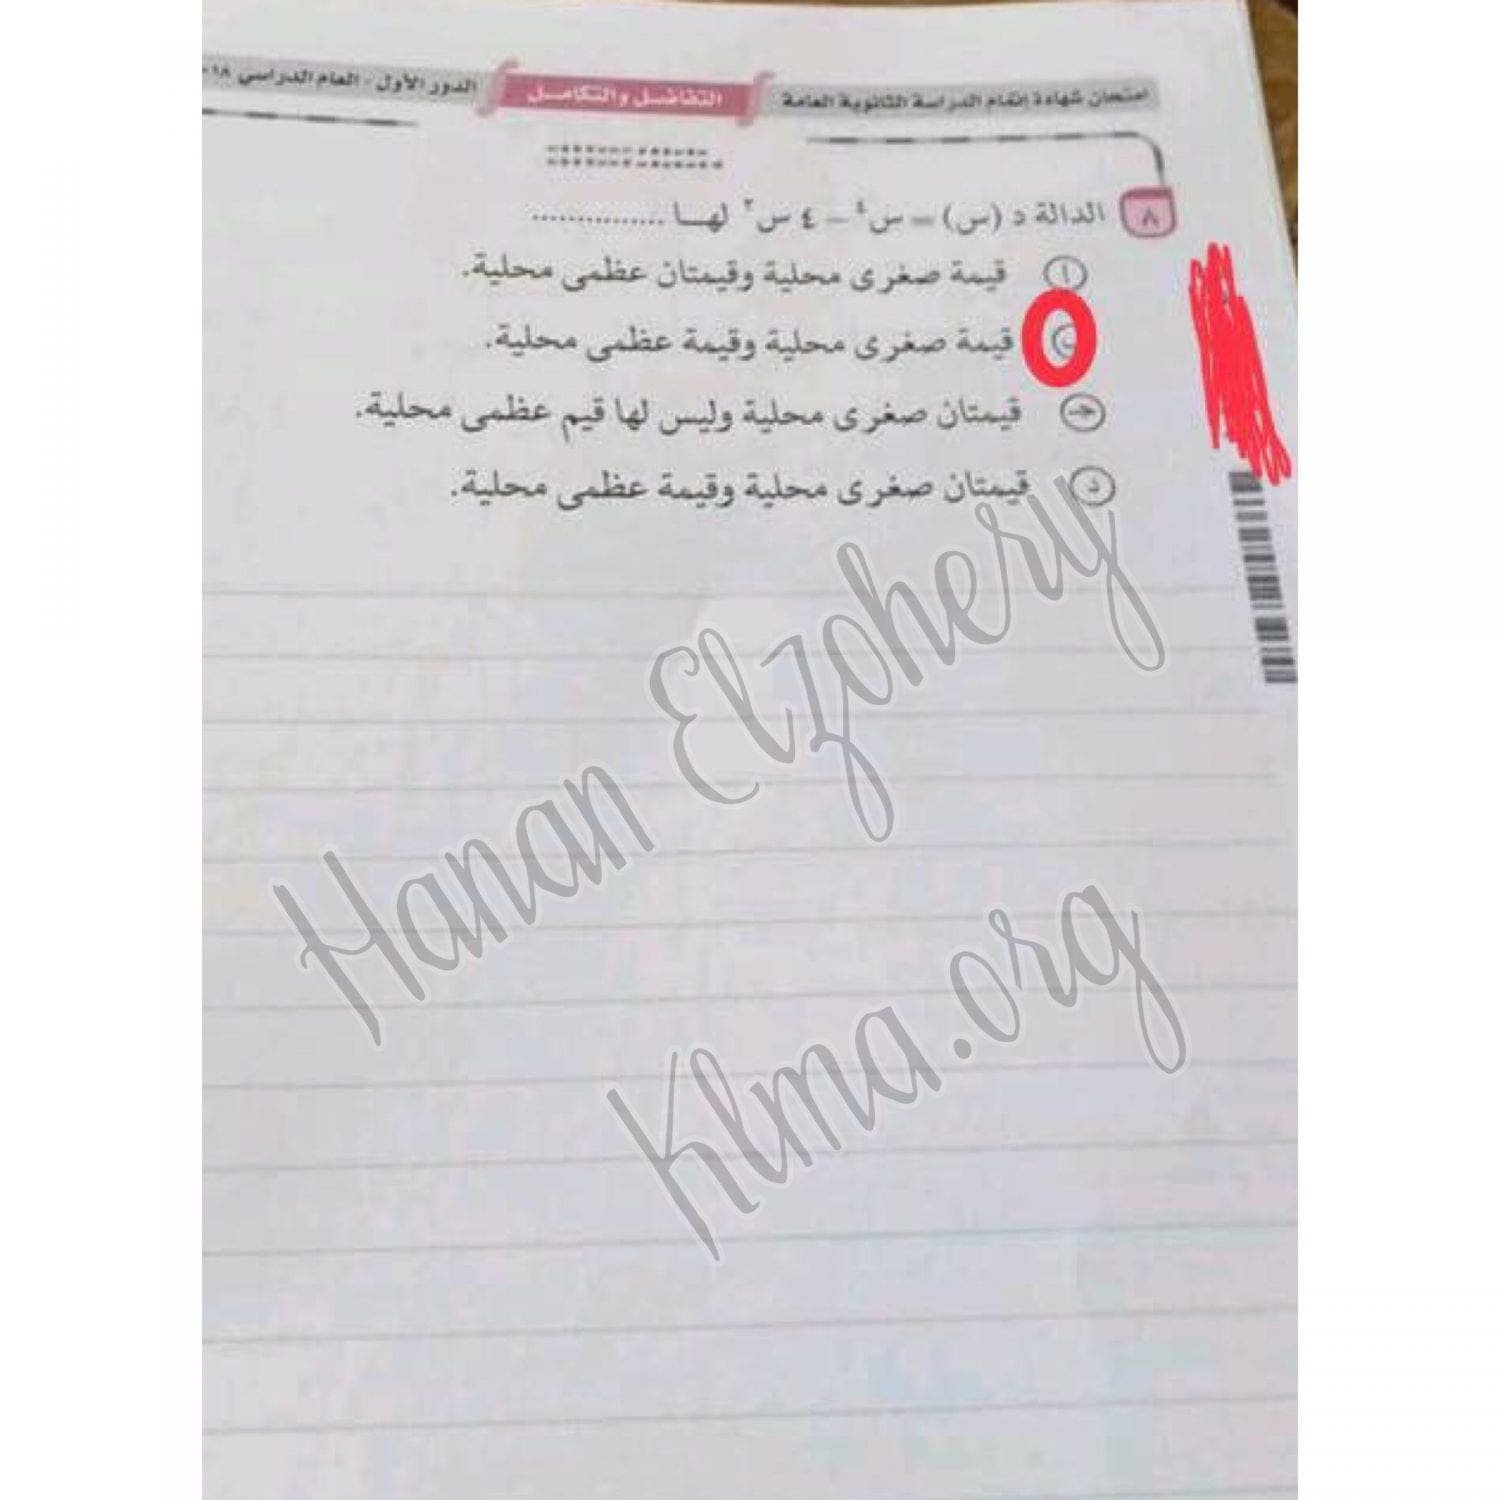 امتحان شهادة إتمام الدراسة الثانوية العامة
التفاضل والتكامل
الدور الأول - العام الدراسي
٨ الدالة د (س) = س⁴ - ٤ س² لها ................
أ قيمة صغرى محلية وقيمتان عظمى محلية.
ب قيمة صغرى محلية وقيمة عظمى محلية.
ج قيمتان صغرى محلية وليس لها قيم عظمى محلية.
د قيمتان صغرى محلية وقيمة عظمى محلية.
Hanan Elzohery
Klma.org